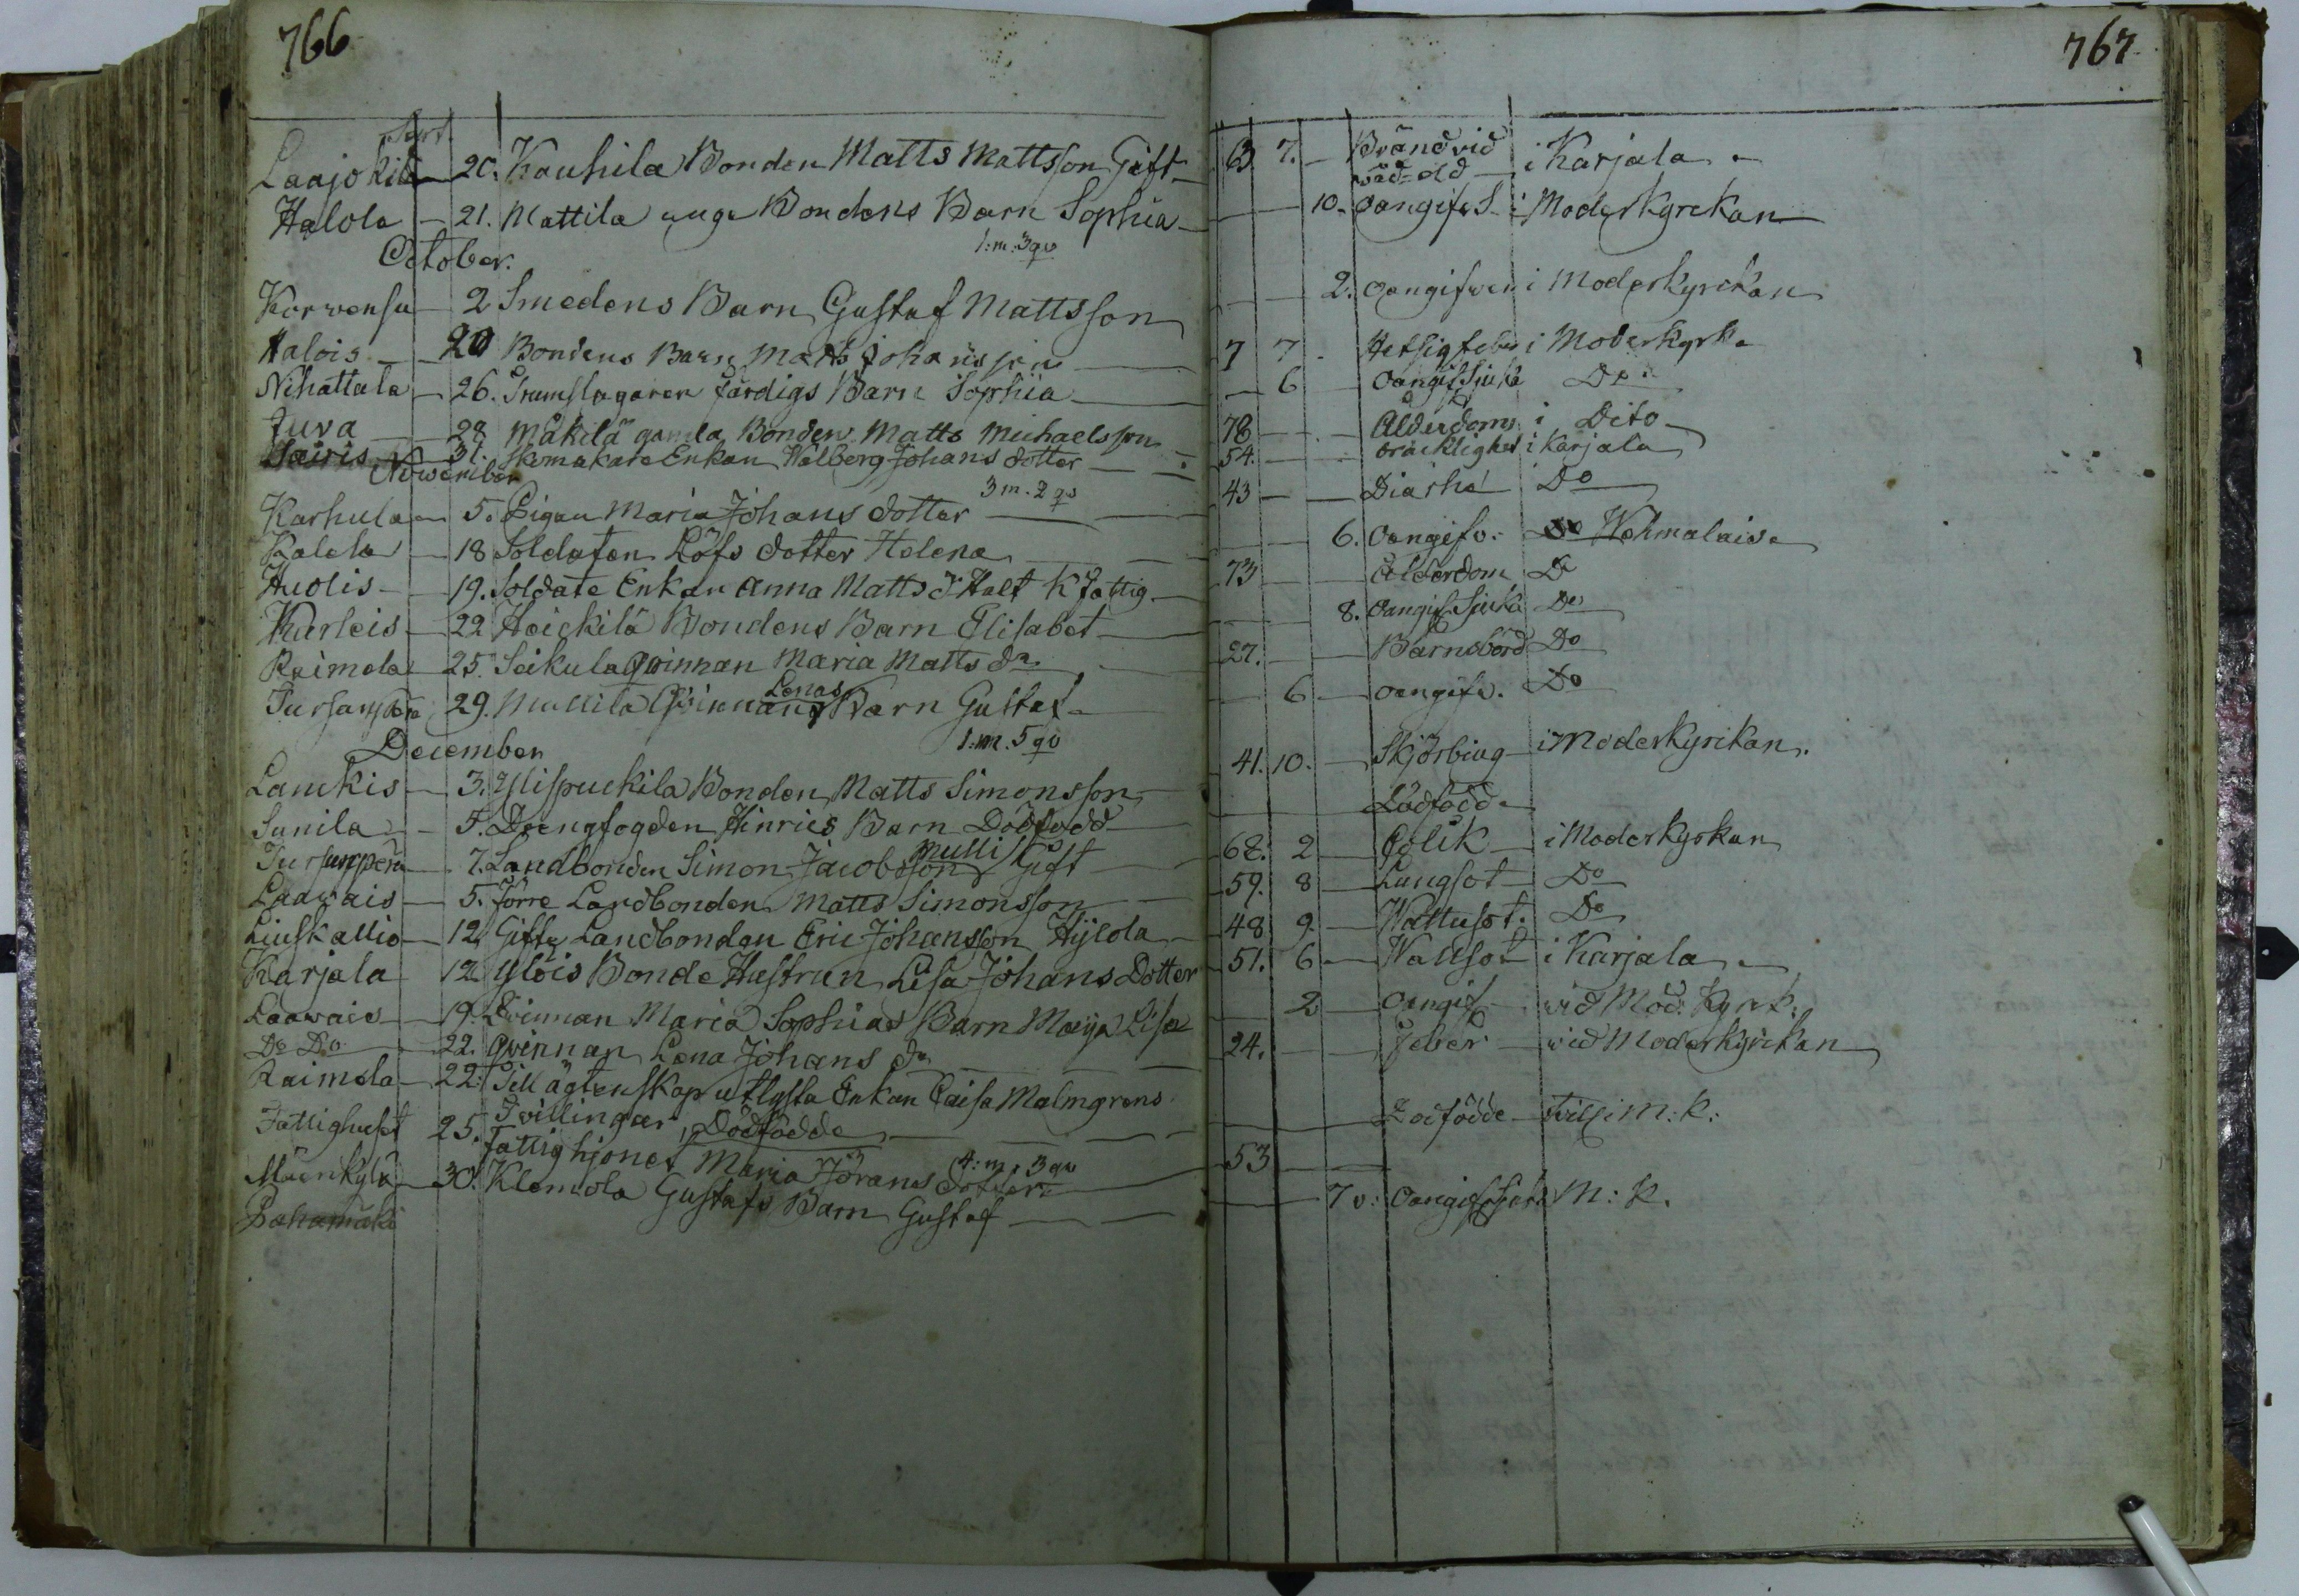 766
Sept.
Laajoki 20. Kauhila Bonden Matts Mattsson Gift
Halola 21. Mattila unga Bondens Barn Sophia
1:m. 3 qv
October.
Korvensu 2 Smedens Barn Gustaf Mattsson
Halois 20 Bondens Barn Matts Johansson
Nihattala 26. Trumslagaren färdigs Barn Sophia
Juva 28 Mäkilä gamla Bonden Matts Michaelsson
Sairis 31. Skomakare Enkan Walborg Johans dotter
November
3 m. 2 qv
Karhula 5. Pigan Maria Johans dotter
Kalela 18 Soldaten Löfs dotter Helena
Huolis 19. Soldate Enkan Anna Matts dr Half K fattig
Kurleis 22 Heickilä Bondens Barn Elisabet
Raimela 25. Seikula Qvinnan Maria Matts dr
Tursunperä 29. Mullila Qvinnans Lenas Barn Gustaf
1:m. 5 qv
December
Lauckis 3. Ylispuckila Bonden Matts Simonsson
Sunila 5. Drengfogden Hinrics Barn Dödfödd
Tursunperä 7. Landbonden Simon Jacobsson Mulli Gift
Laavais 5. Förre Landbonden Matts Simonsson
Liuskallio 12 Gifte Landbonden Eric Johansson Hyjola
Karjala 12 Ylois Bonde Hustrun Lisa Johans Dotter
Laavais 19. Qvinnan Maria Sophias Barn Maija Lisa
Do Do 22. Qvinnan Lena Johans dr
Raimela 22. Till ägtenskap utlysta Enkan Caisa Malmgrens
Tvillingar Dödfödde
Fattighuset 25. Fattighjonet Maria Jörans dotter
4:m. 3 qv
Männkylä 30. Klemola Gustafs Barn Gustaf
Pahamäki
767
63 7. Bränd vid
våd-eld i Karjala
10. oangifv S. i Moderkyrckan
2. oangifven i Moderkyrckan
7 7 Hetsigfeber i Moderkyrka
6 oangif Siuka Do
78 Ålderdom i Dito
54. bräcklighet i Karjala
43 Diarhé Do
6. Oangifv. Do Wehmalais
73 Ålderdom Do
8. Oangif. Siuka Do
27. Barnsbörd Do
6 oangifv. Do
41. 10. Skjörbiug i Moderkyrckan.
Dödfödd
68. 2 Colik i Moderkyrkan
59. 8 Lungsot Do
48 9. Wattusot. Do
51. 6 Wattsot i Karjala
2 Oangif vid Mod: Kyrk.
24. Feber vid Moderkyrckan
Dödfödde M: K:
53
7 v: Oangif. Siuka M: K.